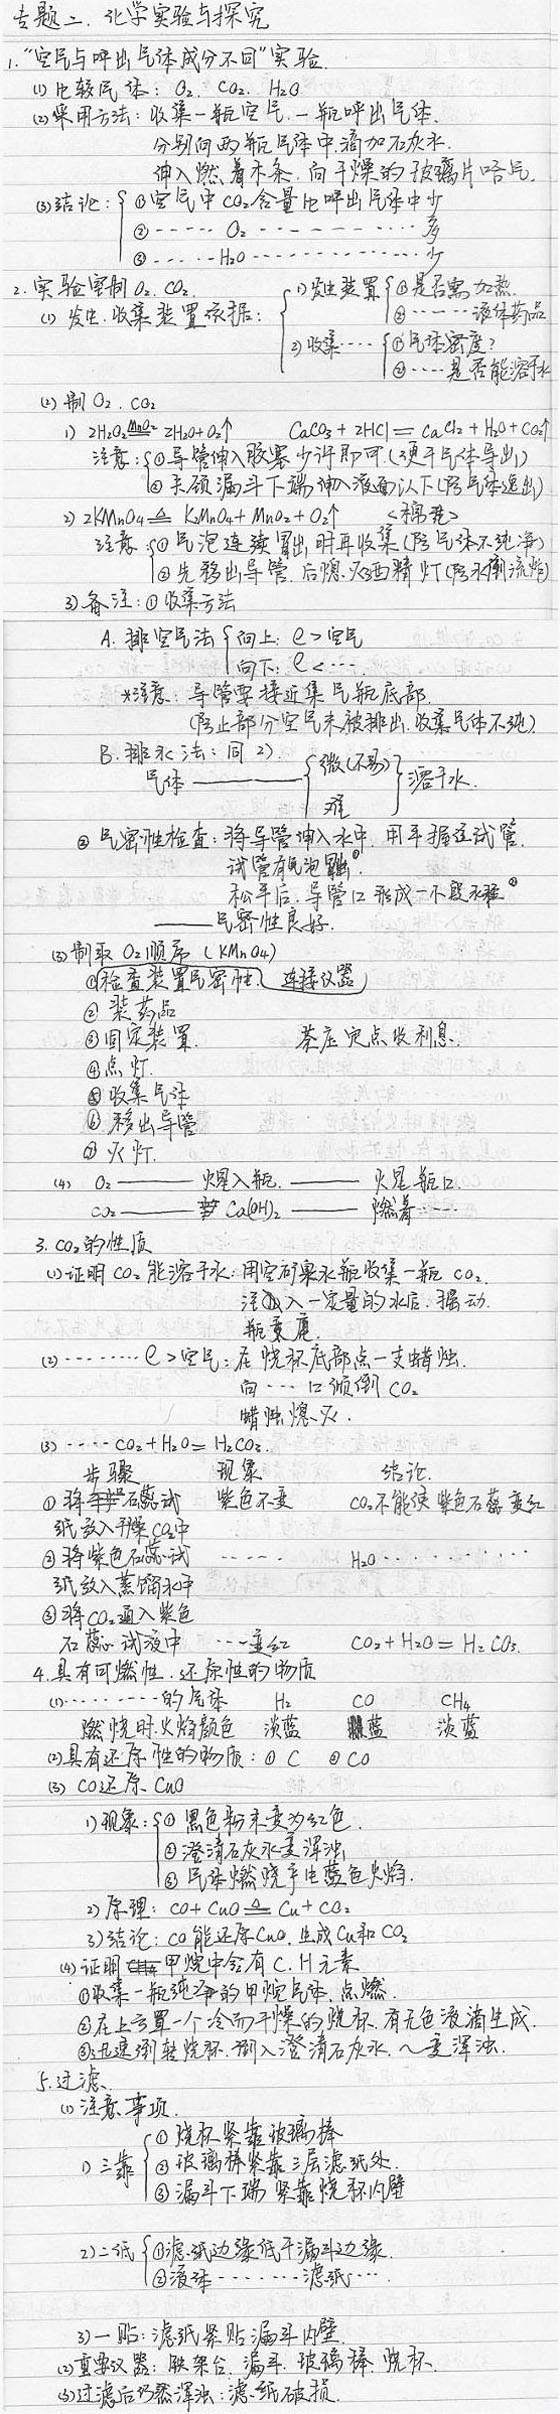 专题二、化学实验与探究
1."空气与呼出气体成分不同"实验.
(1)比较气体：O₂、CO₂、H₂O
(2)采用方法：收集一瓶空气.一瓶呼出气体.
分别向两瓶气体中滴加石灰水.
伸入燃着木条.向干燥的玻璃片哈气.
(3)结论：①空气中CO₂含量比呼出气体中少
②-----O₂----------多
③-----H₂O---------少
2.实验室制O₂、CO₂.
(1)发生、收集装置依据：
1)发生装置 ①是否需加热
②------液体药品
2)收集---- ①气体密度？
②----是否能溶于水
(2)制O₂、CO₂
1) 2H₂O₂ MnO₂ 2H₂O+O₂↑ CaCO₃+2HCl=CaCl₂+H₂O+CO₂↑
注意：①导管伸入胶塞少许即可.(便于气体导出)
②长颈漏斗下端伸入液面以下(防气体逸出)
2) 2KMnO₄ △ K₂MnO₄+MnO₂+O₂↑ <棉花>
注意：①气泡连续冒出时再收集(防气体不纯净)
②先移出导管.后熄灭酒精灯(防水倒流炸)
3)备注：①收集方法
A.排空气法 向上：ρ>空气
向下：ρ<---
*注意：导管要接近集气瓶底部.
(防止部分空气未被排出.收集气体不纯)
B.排水法：同2).
气体———— 微(不易) 难 溶于水.
②气密性检查：将导管伸入水中.用手握这试管.
试管有气泡冒出①.
松手后.导管口形成一小段水柱②
——气密性良好.
(3)制取O₂顺序(KMnO₄)
①检查装置气密性.(连接仪器)
②装药品
③固定装置. 茶庄定点收利息.
④点灯.
⑤收集气体
⑥移出导管
⑦灭灯.
(4) O₂———火星入瓶.———火星瓶口.
CO₂——— Ca(OH)₂———燃着----
3.CO₂的性质
(1)证明CO₂能溶于水：用空矿泉水瓶收集一瓶CO₂.
注入一定量的水后.振动.
瓶变扁.
(2)--------ρ>空气：在烧杯底部点一支蜡烛.
向---口倾倒CO₂
蜡烛熄灭.
(3)----CO₂+H₂O=H₂CO₃.
步骤 现象 结论.
①将石蕊试 紫色不变 CO₂不能使紫色石蕊变红
纸放入干燥CO₂中
②将紫色石蕊试 ----- H₂O----------
纸放入蒸馏水中
③将CO₂通入紫色
石蕊试液中 ---变红 CO₂+H₂O=H₂CO₃.
4.具有可燃性、还原性的物质
(1)---------的气体 H₂ CO CH₄
燃烧时火焰颜色 淡蓝 蓝 淡蓝
(2)具有还原性的物质：①C ②CO
(3)CO还原CuO
1)现象：①黑色粉末变为红色.
②澄清石灰水变浑浊
③气体燃烧产生蓝色火焰.
2)原理：CO+CuO △ Cu+CO₂
3)结论：CO能还原CuO.生成Cu和CO₂
(4)证明甲烷中含有C、H元素
①收集一瓶纯净的甲烷气体.点燃.
②在上方罩一个冷而干燥的烧杯.有无色液滴生成.
③迅速倒转烧杯.倒入澄清石灰水.~变浑浊.
5.过滤.
(1)注意事项.
1)三靠 ①烧杯紧靠玻璃棒
②玻璃棒紧靠三层滤纸处.
③漏斗下端紧靠烧杯内壁
2)二低 ①滤纸边缘低于漏斗边缘.
②液体-------滤纸---.
3)一贴：滤纸紧贴漏斗内壁.
(2)重要仪器：铁架台.漏斗.玻璃棒.烧杯.
(3)过滤后仍然浑浊：滤纸破损.